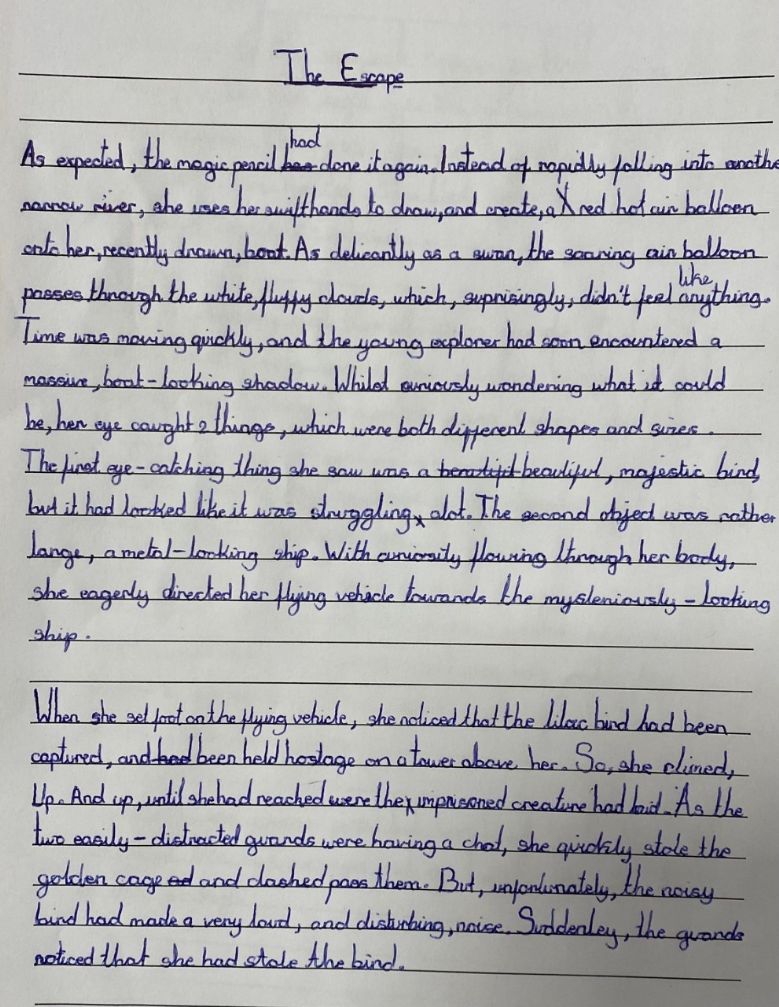 The Escape
had
As expected, the magic pencil has done it again. Instead of rapidly falling into anothe
narrow river, she uses her swift hands to draw, and create, a red hot air balloon
onto her, recently drawn, boat. As delicantly as a swan, the soaring air balloon
like
passes through the white, fluffy clouds, which, suprisingly, didn't feel anything.
Time was moving quickly, and the young explorer had soon encountered a
massive, boat-looking shadow. Whilst curiously wondering what it could
be, her eye caught 2 things, which were both different shapes and sizes.
The first eye-catching thing she saw was a beautiful, majestic bird,
but it had looked like it was struggling, alot. The second object was rather
large, a metal-looking ship. With curiosity flowing through her body,
she eagerly directed her flying vehicle towards the mysteriously-looking
ship.
When she set foot on the flying vehicle, she noticed that the lilac bird had been
captured, and had been held hostage on a tower above her. So, she climed,
Up. And up, until she had reached were the imprisoned creature had laid. As the
two easily-distracted guards were having a chat, she quickly stole the
golden cage ed and dashed pass them. But, unfortunately, the noisy
bird had made a very loud, and disturbing, noise. Suddenley, the guards
noticed that she had stole the bird.